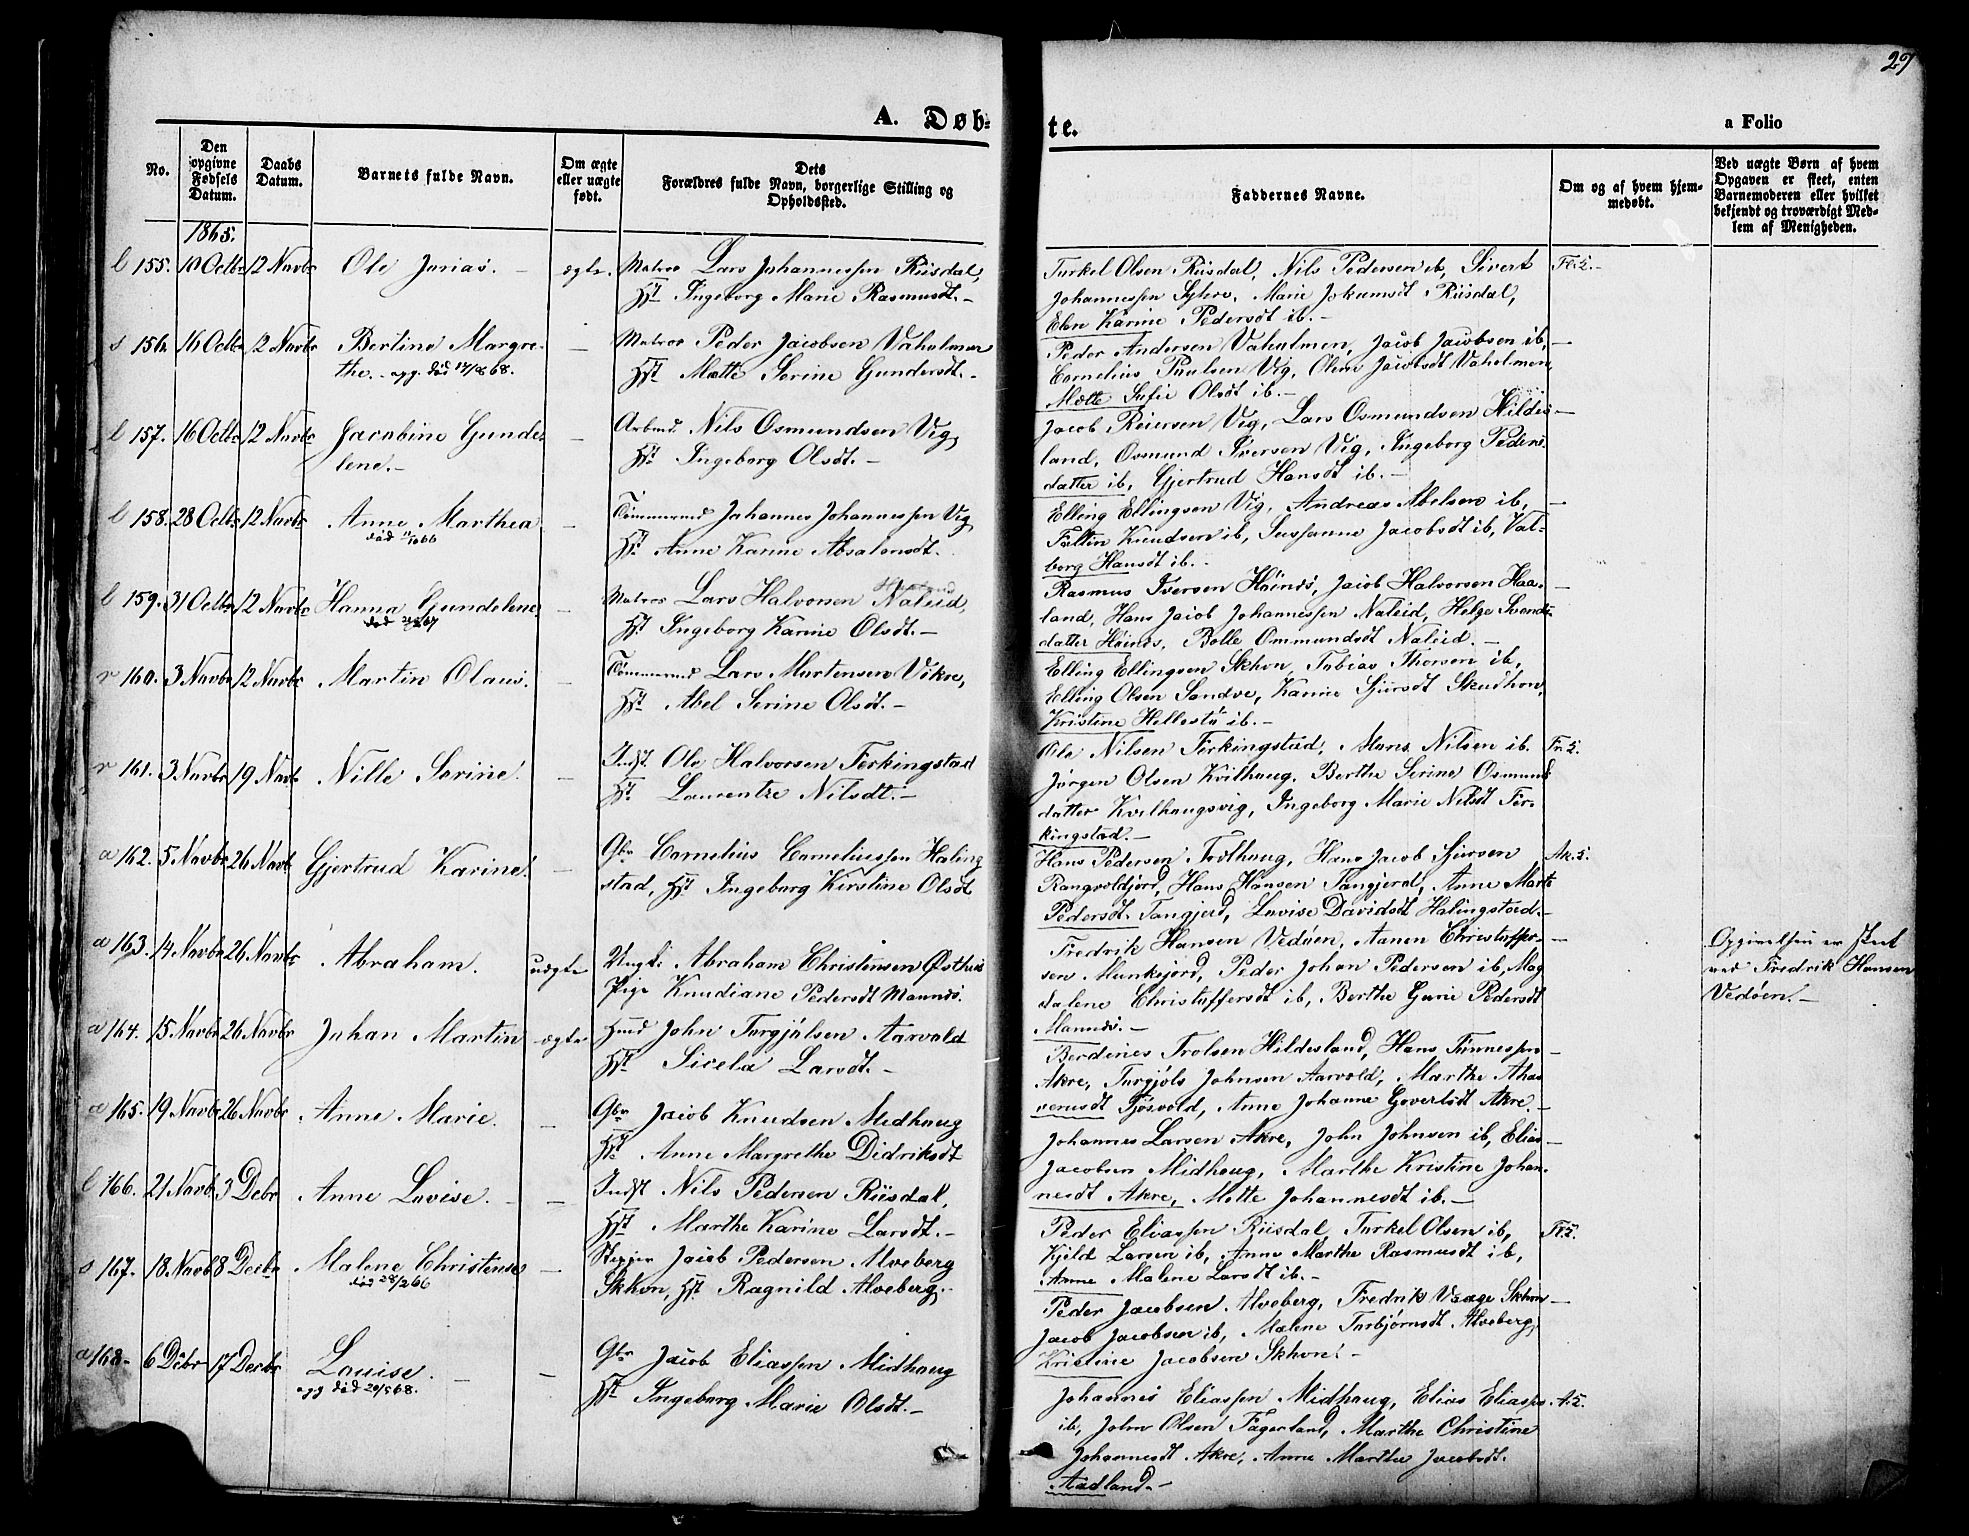 29
A. Døb-
te.
a Folio
No.
Den opgivne Fødsels Datum.
Daabs Datum.
Barnets fulde Navn.
Om ægte eller uægte født.
Dets Forældres fulde Navn, borgerlige Stilling og Opholdssted.
Faddernes Navne.
Om og af hvem hjem-medøbt.
Ved uægte Børn af hvem Opgaven er skeet, enten Barnemoderen eller hvilket bekjendt og troværdigt Med-lem af Menigheden.
1865.
l 155. 10 Octbr 12 Novbr Ole Jonas. - ægte. Matros Lars Johannessen Riisdal,
Hst Ingeborg Marie Rasmusdt. -
Torkel Olsen Riisdal, Nils Pedersen ib, Sivert
Johannessen Syhre, Marie Jokumsdt Riisdal,
Elen Karine Pedersdt ib. -
s 156. 16 Octbr 12 Novbr Bertine Margre-
the. - død 14/8 68.
Matros Peder Jacobsen Vaholmen
Hst Mette Serine Gundersdt. -
Peder Andersen Vaholmen, Jacob Jacobsen ib,
Cornelius Paulsen Vig, Oline Jacobsdt Vaholmen,
Mette Sofie Olsdt ib. -
l 157. 16 Octbr 12 Novbr Jacobine Gunde-
lene. -
Arbmd. Nils Osmundsen Vig,
Hst Ingeborg Olsdt. -
Jacob Reiersen Vig, Lars Osmundsen Hildes-
land, Osmund Iversen Vig, Ingeborg Peders-
datter ib, Gjertrud Hansdt ib. -
l 158. 28 Octbr 12 Novbr Anne Marthea
død 66
Tømmermd Johannes Johannessen Vig
Hst Anne Karine Absalonsdt.
Elling Ellingsen Vig, Andreas Abelsen ib,
Falten Knudsen ib, Sussanne Jacobsdt ib, Val-
borg Hansdt ib. -
l 159. 31 Octbr 12 Novbr Hanna Gundelene
død 67
Matros Lars Halvorsen Naleid,
Hst Ingeborg Karine Olsdt. -
Rasmus Iversen Høines, Jacob Halvorsen Haa-
land, Hans Jacob Johannessen Naleid, Helge Svends-
datter Høines, Bolle Ommundsdt Naleid. -
r 160. 3 Novbr 12 Novbr Martin Olaus.
Tømmermd Lars Mortensen Vikre,
Hst Abel Serine Olsdt. -
Elling Ellingsen Skhvn, Tobias Thorsen ib,
Elling Olsen Sandve, Karine Sjursdt Skudhvn,
Kristine Hellestø ib. -
r 161. 3 Novbr 19 Novb Nille Serine.
Indst. Ole Halvorsen Ferkingstad
Hst. Laurentze Nilsdt. -
Ole Nilsen Ferkingstad, Mons Nilsen ib.
Jørgen Olsen Kvilhaug, Berthe Serine Osmunds-
datter Kvilhaugsvig, Ingeborg Marie Nilsdt Fer-
kingstad. -
a 162. 5 Novbr 26 Novb Gjertrud Karine.
Gbr Cornelius Corneliussen Haling
stad, Hst Ingeborg Kirstine Olsdt
Hans Pedersen Todthaug, Hans Jacob Sjursen
Rangvoldjord, Hans Hansen Tangjerd, Anne Marte
Pedersdt. Tangjerd, Lovise Davidsdt Halingstad. -
a 163. 14 Novbr 26 Novbr Abraham. uægte Ungk. Abraham Christensen Østhus
Pige Knudiane Pedersdt Mannes.
Fredrik Hansen Vedøen, Aanen Christoffer-
sen Munkejord, Peder Johan Pedersen ib, Mag
dalene Christoffersdt ib, Berthe Gurie Pedersdt
Mannes. -
Opgivelsen er skeet
ved Fredrik Hansen
Vedøen. -
a 164. 15 Novbr 26 Novbr Johan Martin ægte Hmd John Torgjulsen Aarvold
Hst Sicela Larsdt. -
Berdines Trolsen Hildesland, Hans Tønnessen
Akre, Torgjuls Johnsen Aarvold, Marthe Ahas
verusdt Tjøsvold, Anne Johanne Govertsdt Akre. -
a 165. 19 Novbr 26 Novbr Anne Marie.
Gbr Jacob Knudsen Midhaug
Hst Anne Margrethe Didriksdt
Johannes Larsen Akre, John Johnsen ib, Elias
Jacobsen Midhaug, Marthe Kristine Johan-
nesdt Akre, Mette Johannesdt ib. -
l 166. 21 Novbr 3 Debr Anne Lovise. -
Indst Nils Pedersen Riisdal,
Hst Marthe Karine Larsdt. -
Peder Eliassen Riisdal, Torkel Olsen ib,
Kjeld Larsen ib, Anne Marthe Rasmusdt ib,
Anne Malene Larsdt ib. -
s 167. 18 Novbr 8 Decbr Malene Christense
død 28/2 66
Skipper Jacob Pedersen Alveberg
Skhvn, Hst. Ragnild Alveberg. -
Peder Jacobsen Alveberg, Fredrik Vaage Skhvn
Jacob Jacobsen ib, Malene Torbjørnsdt Alveberg,
Kristine Jacobsen Skhvn. -
a 168. 6 Debr 17 Decbr Louise.
død 20/5 68.
Gbr Jacob Eliassen Midhaug
Hst Ingeborg Marie Olsdt. -
Johannes Eliassen Midhaug, Elias Eliassen
ib, John Olsen Fagerland, Marthe Christine
Johannesdt Akre, Anne Marthe Jacobsdt.
Aadland. -